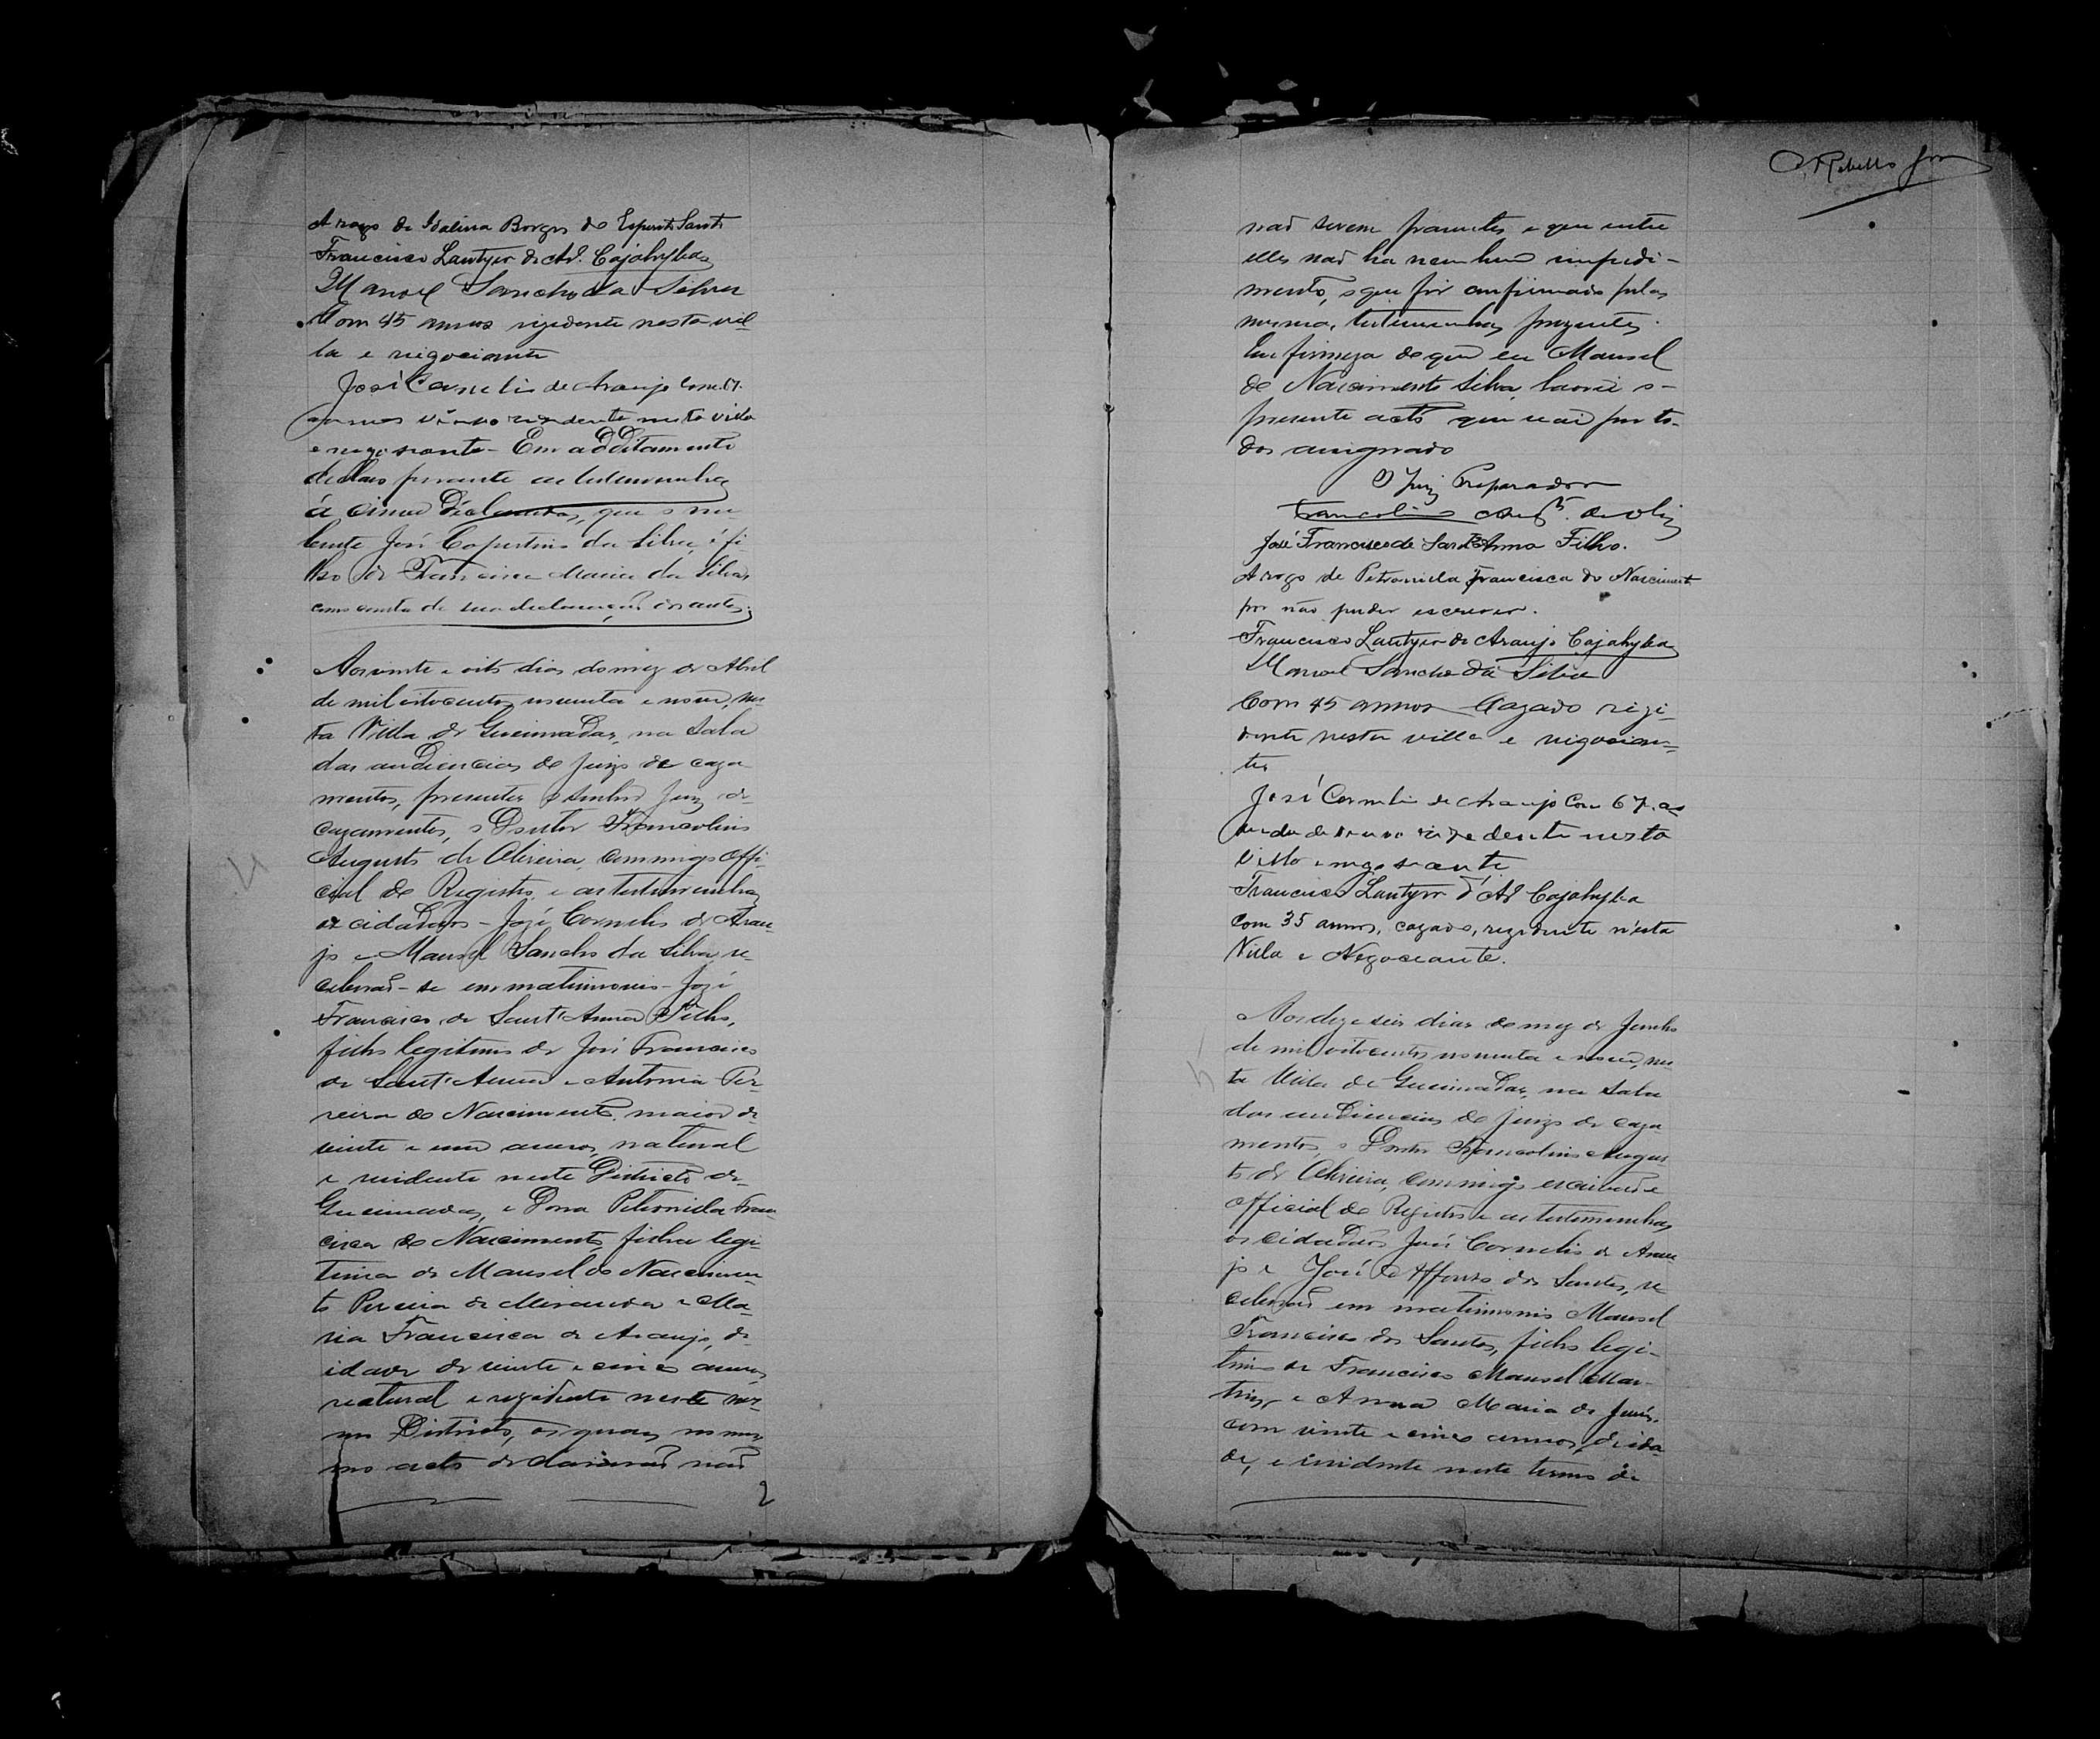 A rogo de Idalina Borges do Espirito Santo
Francisco Lantyer de Ar. Cajahyba
Manoel Sancho da Silva
Com 45 annos rezidente nesta vil-
la e negociante
José Cornelio de Araujo Com 67
annos viuvo rezidente nesta villa
e negosiante - Em additamento
declaro perante as testemunhas
á cima declaradas, que o nu-
bente José Copertino da Silva, é fi-
lho de Francisca Maria da Silva,
como consta de sua declaração
Aos vinte e oito dias do mez de Abril
de mil oitocentos noventa e nove, nes-
ta Villa de Queimadas, na sala
das audiencias do juizo de caza-
mentos, presentes o Senhor Juiz de
cazamentos, o Doutor Francolino
Augusto de Oliveira, commigo offi-
cial do Registro, e as testemunhas
os cidadãos - José Cornelio de Arau-
jo e Manoel Sancho da Silva, re-
ceberaõ-se em matrimonio - José
Francisco de Sant'Anna Filho,
filho legitimo de José Francisco
de Sant'Anna e Antonia Pe-
reira do Nascimento, maior de
vinte e um annos, natural
e residente neste Districto de
Queimadas, e Dona Petronilla Fran-
cisca do Nascimento, filha legi-
tima de Manoel do Nascimen-
to Pereira de Miranda e Ma-
ria Francisca de Araujo, de
idade de vinte e cinco annos,
natural e rezidente neste mes-
mo Districto, os quaes no mes-
mo acto declararaõ naõ
O Rebello
naõ serem parentes e que entre
elles naõ ha nenhum impedi-
mento, o que foi confirmado pelas
mesmas testemunhas prezentes.
Em firmeza do que eu Manoel
do Nascimento Silva, lavrei o
presente acto que vai por to-
dos assignado
O Juiz Preparador
Francolino Aug.to de Oliv.
José Francisco de Sant'Anna Filho.
A rogo de Petronilla Francisca do Nascimento
por não puder escrever.
Francisco Lantyer de Araujo Cajahyba
Manoel Sancho da Silva
Com 45 annos Cazado rezi-
dente nesta villa e negocian-
te
José Cornelio de Araujo Com 67 as
viuvo rezedente nesta
villa e negosiante
Francisco Lantyer d'Ar. Cajahyba
com 35 annos, cazado, rezidente n'esta
Villa e Negociante.
Aos deze seis dias do mez de Junho
de mil oitocentos noventa e nove, nes-
ta Villa de Queimadas, na sala
das audiencias do juizo de caza-
mentos, o Doutor Francolino Augus-
to de Oliveira, commigo escrivaõ e
official do Registro e as testemunhas
os cidadãos José Cornelio de Arau-
jo e José Affonso dos Santos, re-
ceberaõ em matrimonio Manoel
Francisco dos Santos, filho legi-
timo de Francisco Manoel Mar-
tins, e Anna Maria de Jesus,
com vinte e cinco annos de ida-
de, e rezidente neste termo de